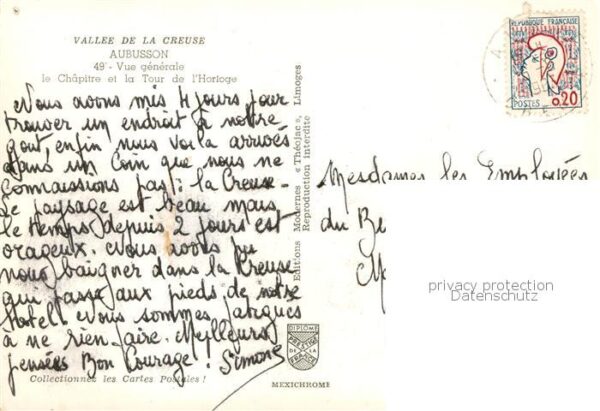 VALLEE DE LA CREUSE
AUBUSSON
49 - Vue générale
le Châpitre et la Tour de l'Horloge
Nous avons mis 4 jours pour
trouver un endroit à notre
gout, enfin nous voilà arrivés
dans un Coin que nous ne
connaissions pas : la Creuse -
Le paysage est beau mais
le temps depuis 2 jours est
orageux. Nous avons pu
nous baigner dans la Creuse
qui passe aux pieds de notre
hotel. Nous sommes fatigués
à ne rien faire. Meilleurs
pensées Bon Courage. Simone
Collectionnez les Cartes Postales !
Editions Modernes « Théojac », Limoges
Reproduction interdite
DIPLOME
PRESTIGE
DE LA
FRANCE
MEXICHROME
REPUBLIQUE FRANÇAISE
POSTES 0,20
Mesdames les Employées
du
privacy protection
Datenschutz